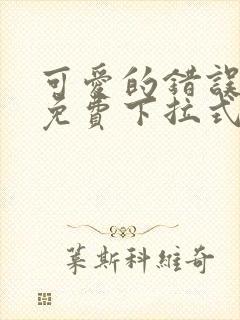 可愛的錯誤
免費下拉式
葉斯科維奇